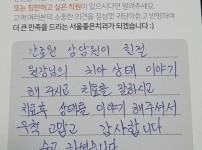 또는 칭찬하고 싶은 직원이 있으시다면 알려주세요.
고객 여러분의 소중한 의견을 정성껏 귀담아듣고 반영하여
더 큰 만족을 드리는 서울좋은치과가 되겠습니다 :)
간호원 상담원이 친절
원장님의 치아 상태 이야기
해 주시고 치료를 잘하시고
치료후 상태를 이야기 해주셔서
무척 고맙고 감사합니다